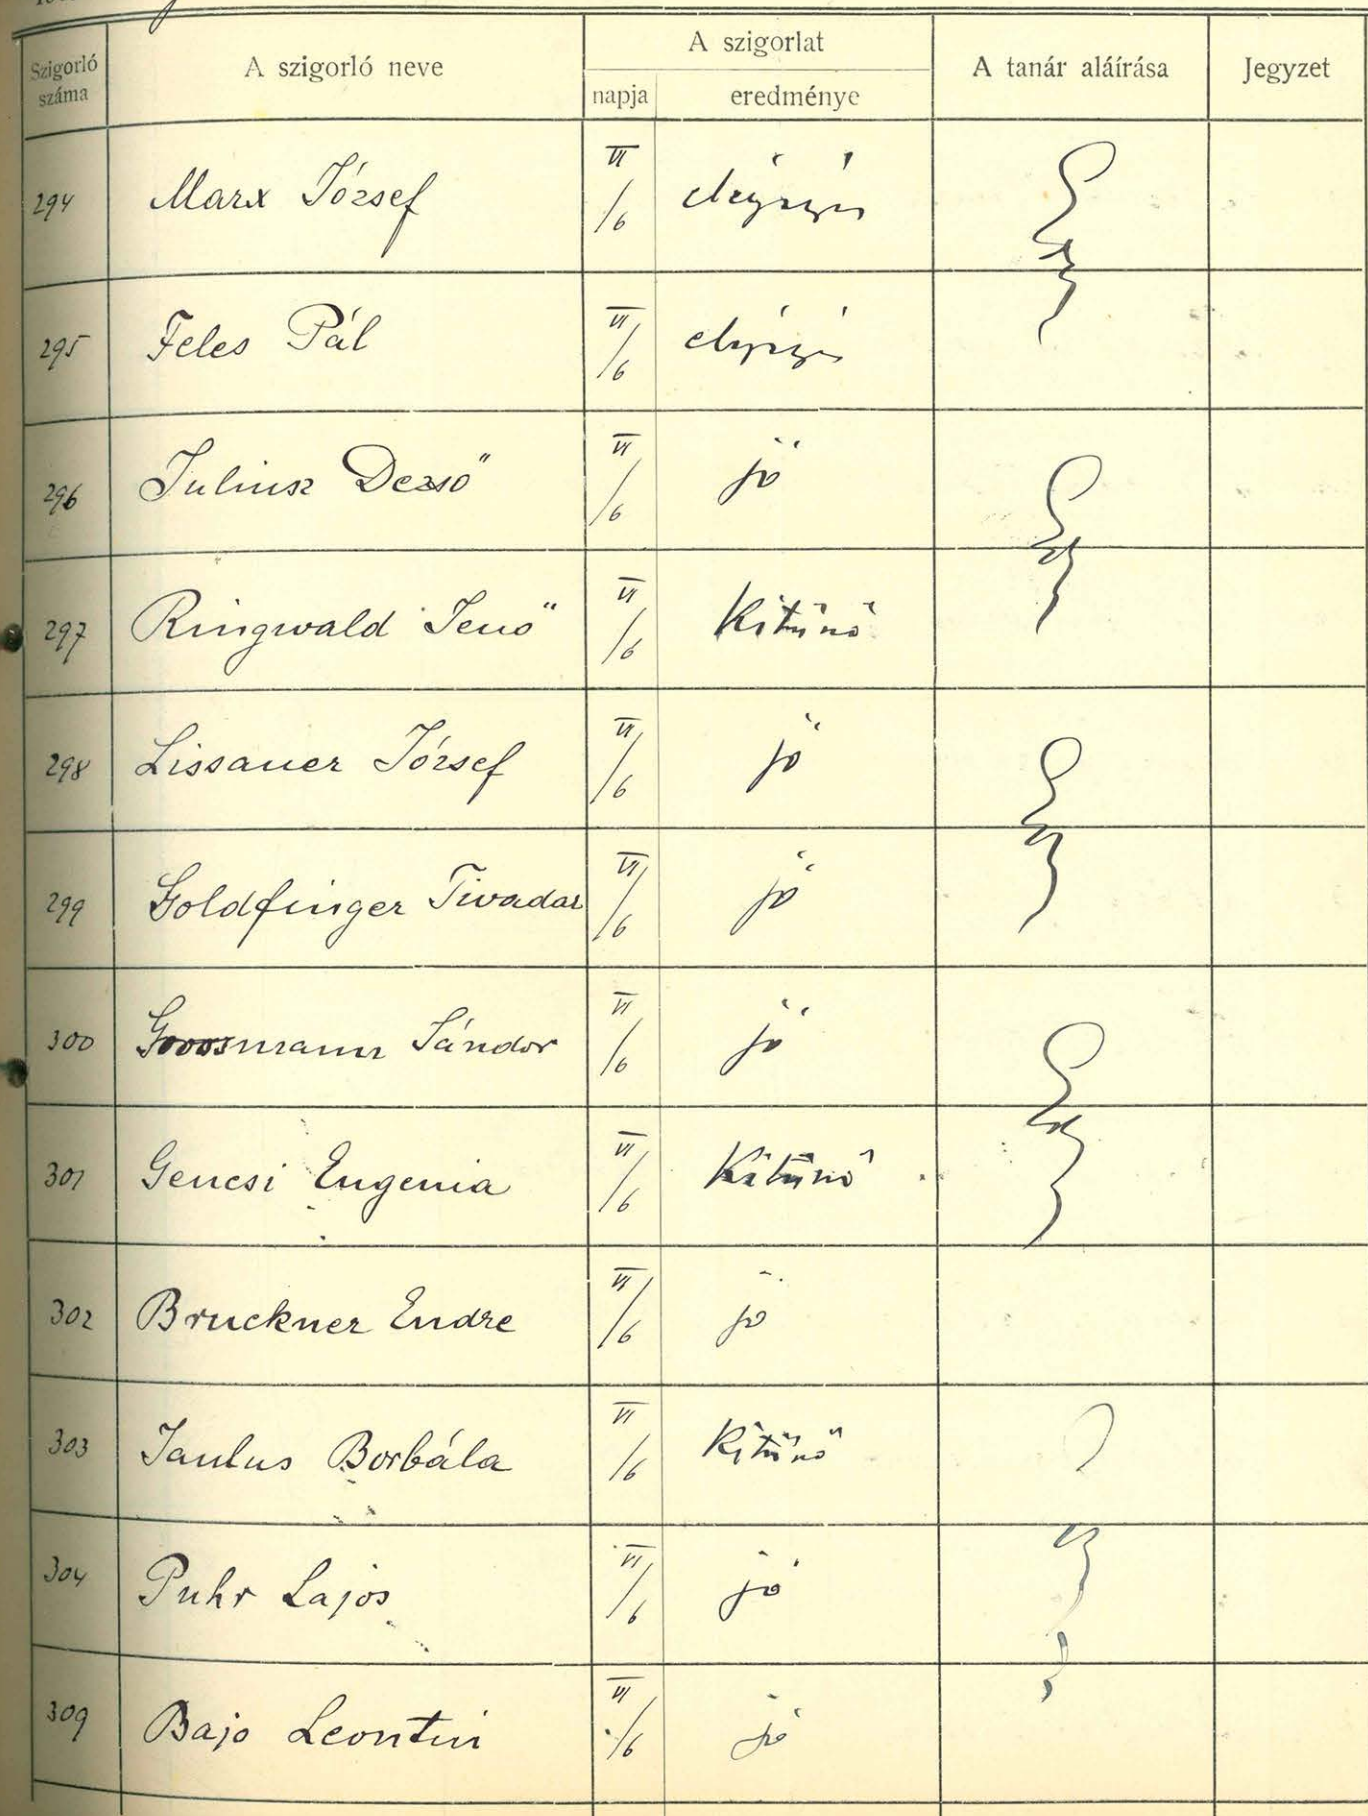 Szigorló száma
A szigorló neve
A szigorlat
napja
eredménye
A tanár aláírása
Jegyzet
294 Marx József VI/6 elégséges
295 Feles Pál VI/6 elégséges
296 Juliusz Dezső VI/6 jó
297 Ringwald Jenő VI/6 Kitünő
298 Lissauer József VI/6 jó
299 Goldfinger Tivadar VI/6 jó
300 Sándor VI/6 jó
301 Gencsi Eugenia VI/6 Kitünő
302 Bruckner Endre VI/6 jó
303 Borbála VI/6 Kitünő
304 Puhr Lajos VI/6 jó
309 Bajo Leontin VI/6 jó